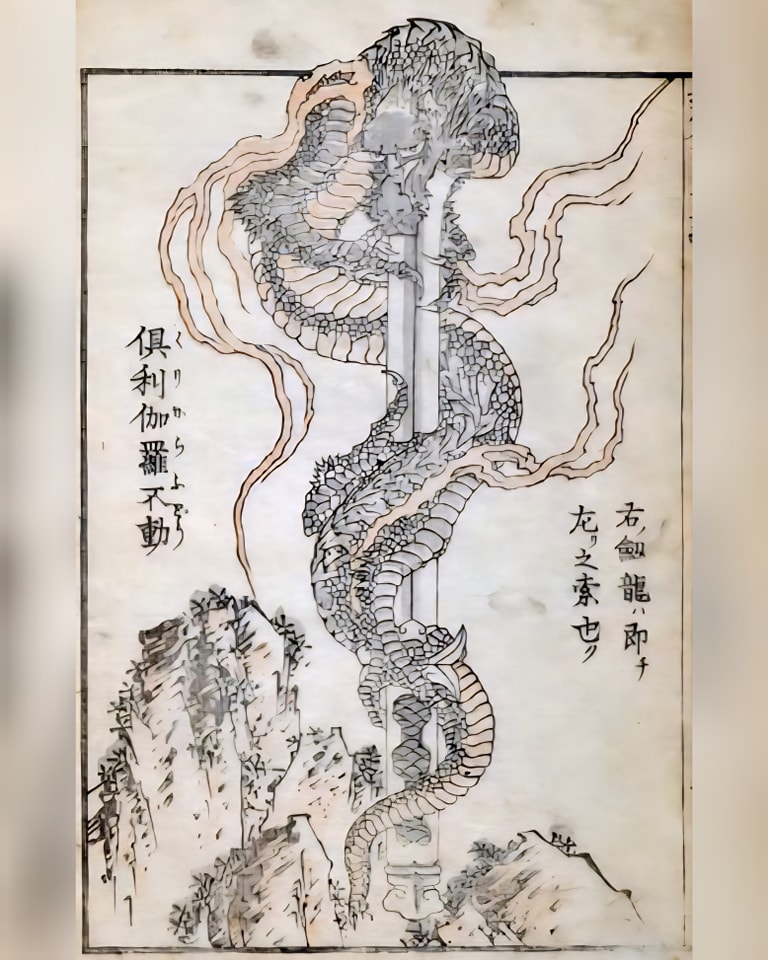 右ノ劔龍ハ即チ
左リ之索也リ
くりからふどう
俱利伽羅不動